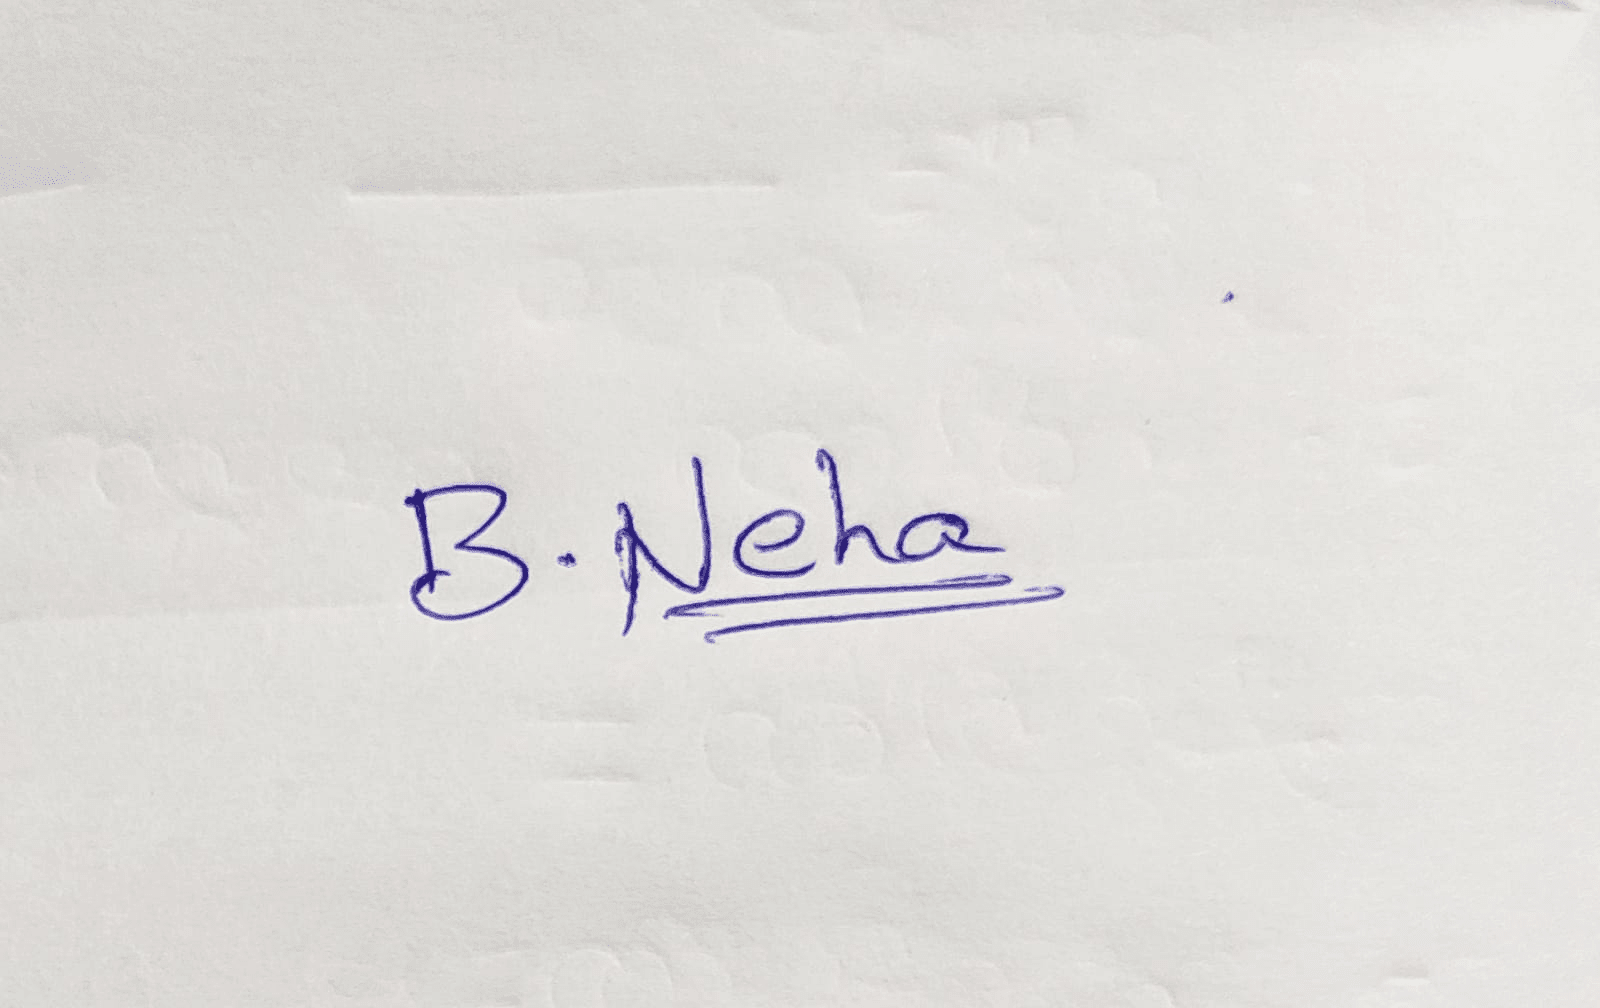 B. Neha